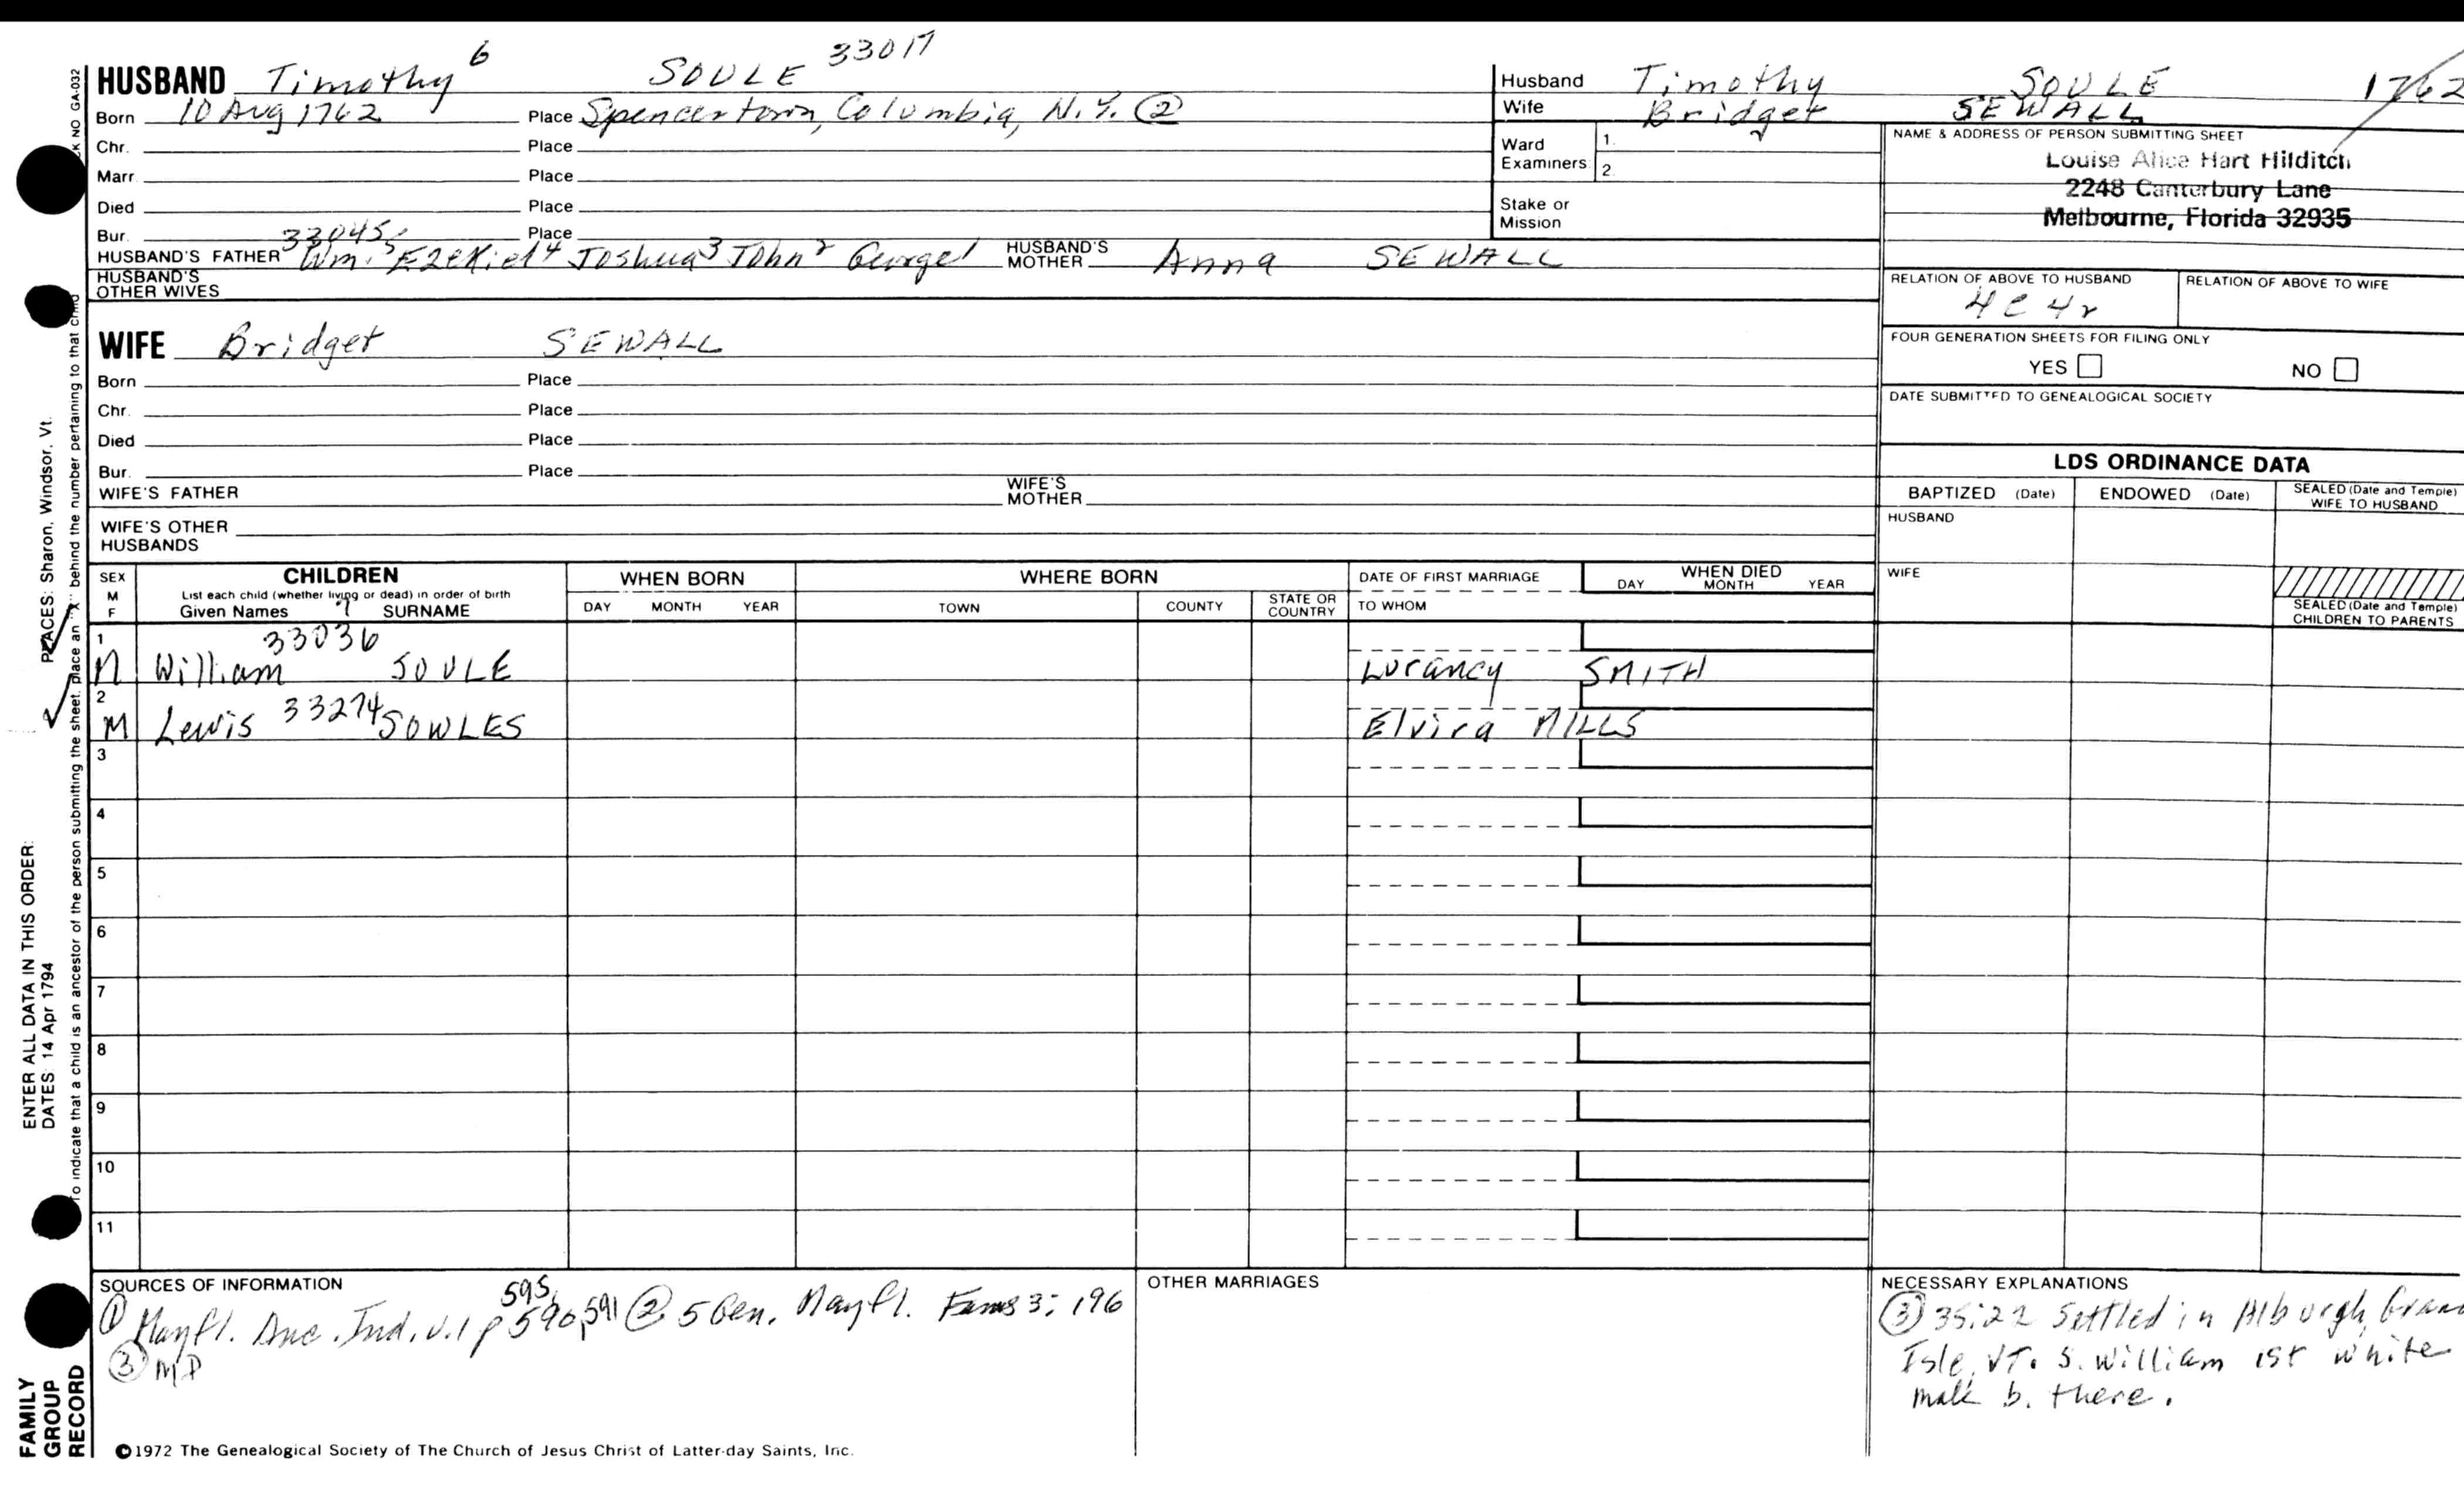 HUSBAND Timothy 6 SOULE 33017
Born 10 Aug 1762 Place Spencertown, Columbia, N.Y. ②
Chr. Place
Marr. Place
Died Place
Bur. Place
33045
HUSBAND'S FATHER Wm.5 Ezekiel4 Joshua3 John2 George1 HUSBAND'S MOTHER Anna SEWALL
HUSBAND'S OTHER WIVES
WIFE Bridget SEWALL
Born Place
Chr. Place
Died Place
Bur. Place
WIFE'S FATHER WIFE'S MOTHER
WIFE'S OTHER HUSBANDS
Husband Timothy SOULE 1762
Wife Bridget SEWALL
Ward Examiners 1. 2.
Stake or Mission
NAME & ADDRESS OF PERSON SUBMITTING SHEET
Louise Alice Hart Hilditch
2248 Canterbury Lane
Melbourne, Florida 32935
RELATION OF ABOVE TO HUSBAND RELATION OF ABOVE TO WIFE
4C 4r
FOUR GENERATION SHEETS FOR FILING ONLY
YES NO
DATE SUBMITTED TO GENEALOGICAL SOCIETY
LDS ORDINANCE DATA
BAPTIZED (Date) ENDOWED (Date) SEALED (Date and Temple) WIFE TO HUSBAND
HUSBAND
WIFE
SEALED (Date and Temple) CHILDREN TO PARENTS
SEX M F CHILDREN WHEN BORN WHERE BORN DATE OF FIRST MARRIAGE WHEN DIED
List each child (whether living or dead) in order of birth
Given Names 7 SURNAME DAY MONTH YEAR TOWN COUNTY STATE OR COUNTRY TO WHOM DAY MONTH YEAR
1 33036
M William SOULE Lurancy SMITH
2
M Lewis 33274 SOWLES Elvira MILLS
3
4
5
6
7
8
9
10
11
SOURCES OF INFORMATION
595,
① Mayfl. Anc. Ind. v.1 p 590,591 ② 5 Gen. Mayfl. Fams 3: 196
③ MD
OTHER MARRIAGES
NECESSARY EXPLANATIONS
③ 35:22 Settled in Alburgh, Gran
Isle, VT. S. William 1st white
male b. there.
©1972 The Genealogical Society of The Church of Jesus Christ of Latter-day Saints, Inc.
FAMILY GROUP RECORD
ENTER ALL DATA IN THIS ORDER:
DATES: 14 Apr 1794
PLACES: Sharon, Windsor, Vt.
To indicate that a child is an ancestor of the person submitting the sheet, place an "X" behind the number pertaining to that child
NO GA-032